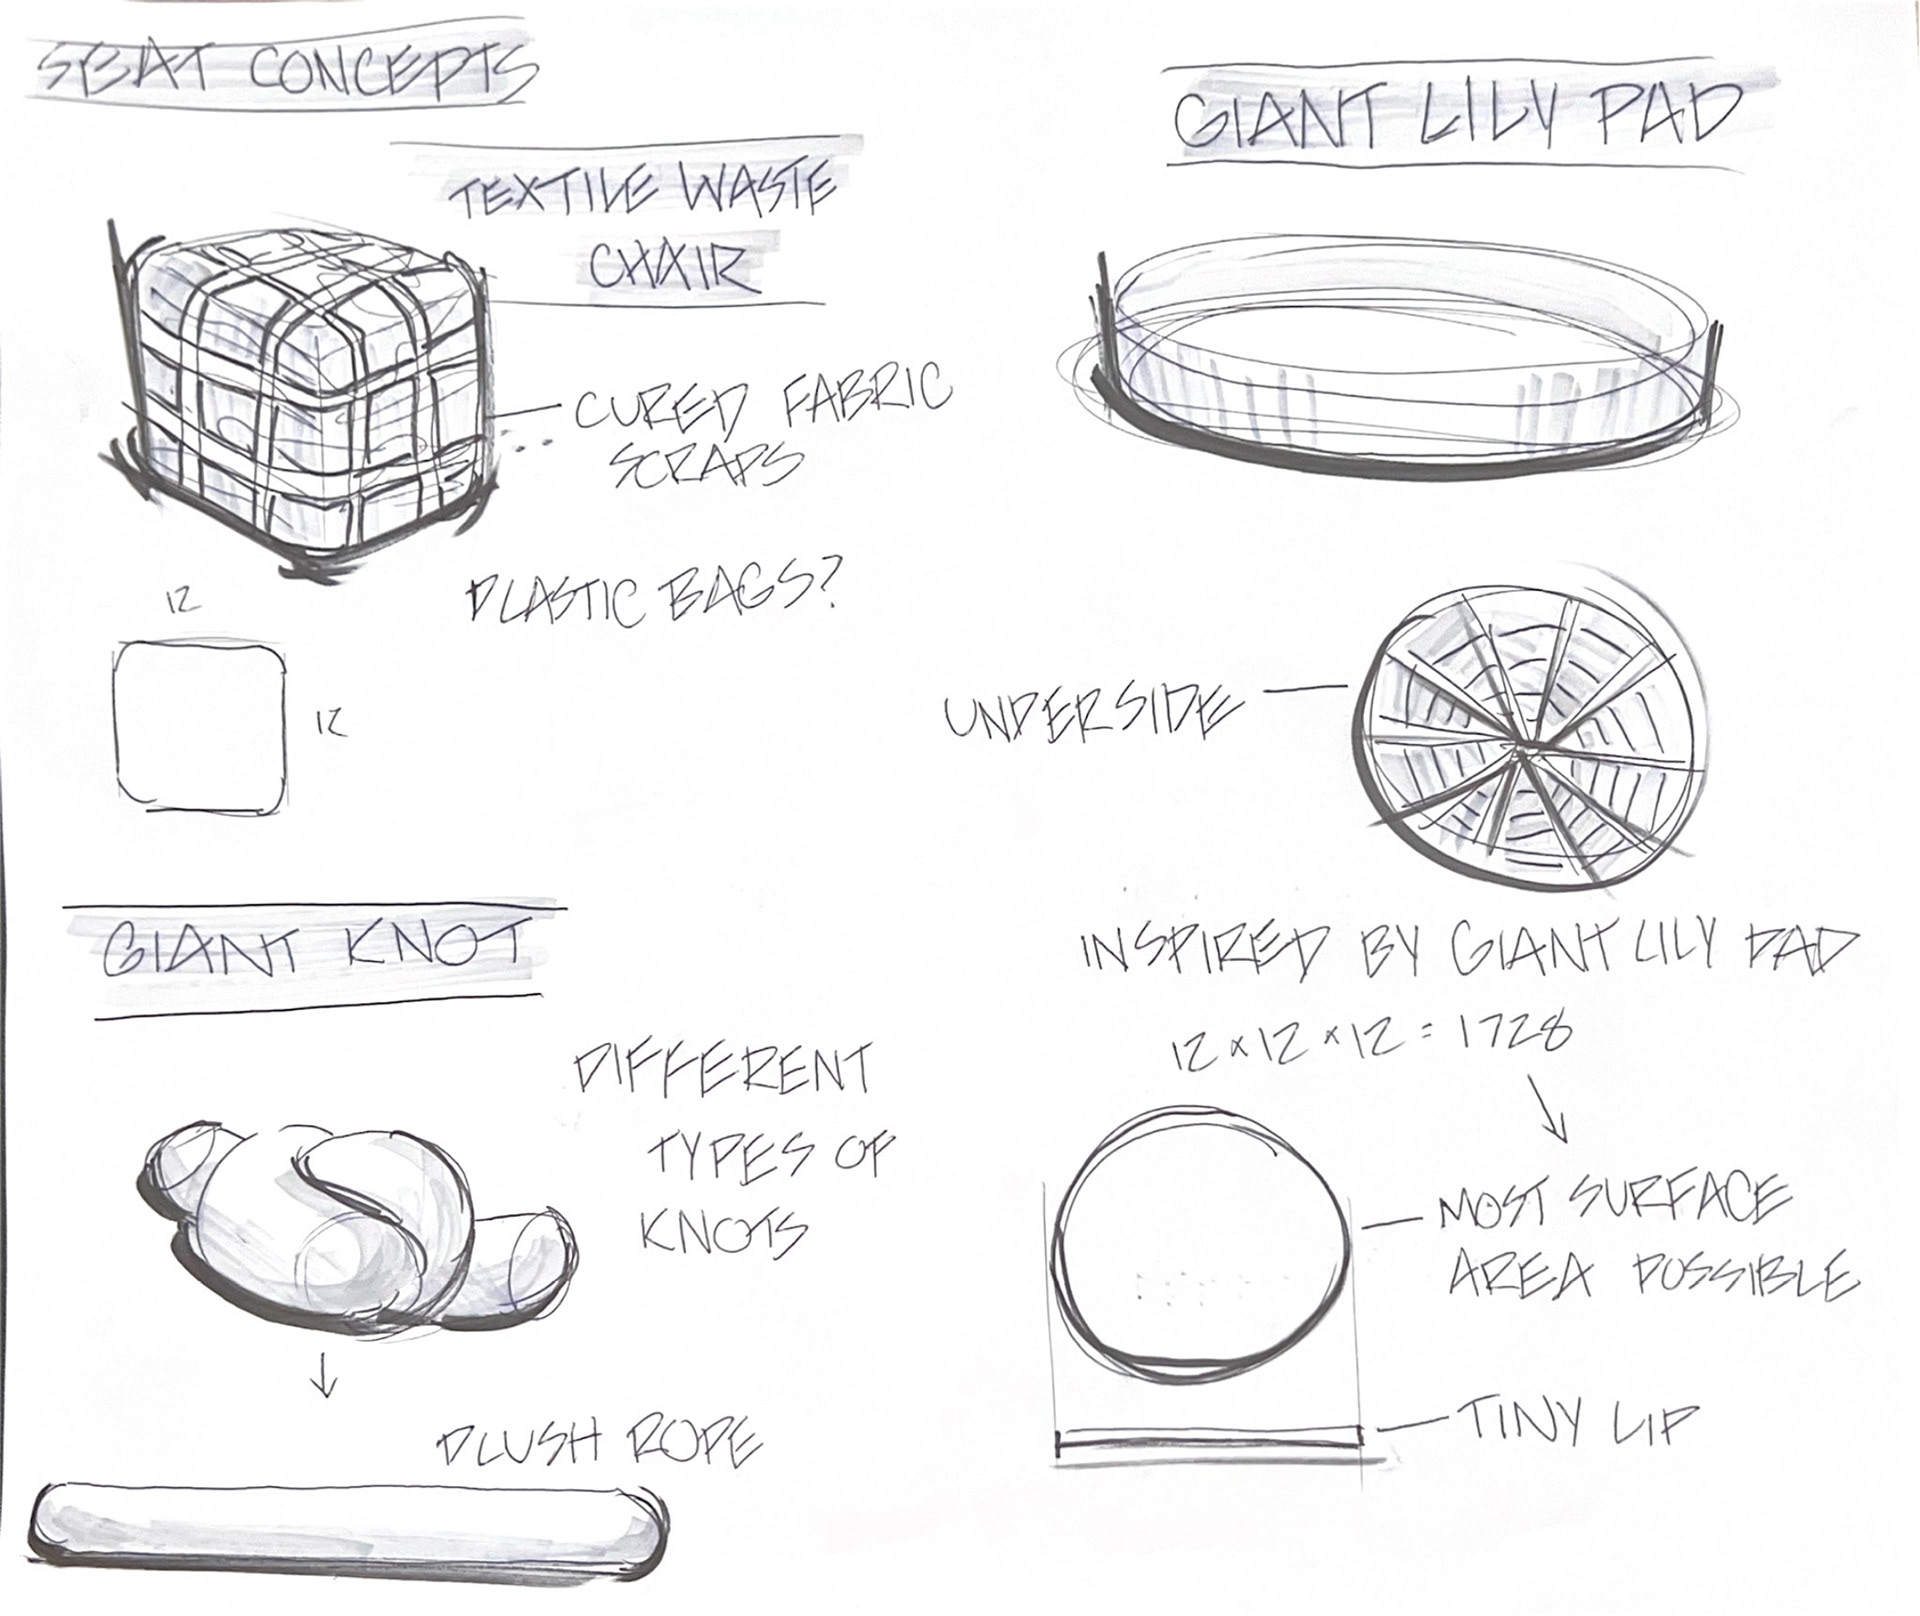 SEAT CONCEPTS
TEXTILE WASTE
CHAIR
CURED FABRIC
SCRAPS
PLASTIC BAGS?
12
12
GIANT KNOT
DIFFERENT
TYPES OF
KNOTS
PLUSH ROPE
GIANT LILY PAD
UNDERSIDE
INSPIRED BY GIANT LILY PAD
12 x 12 x 12 = 1728
MOST SURFACE
AREA POSSIBLE
TINY LIP